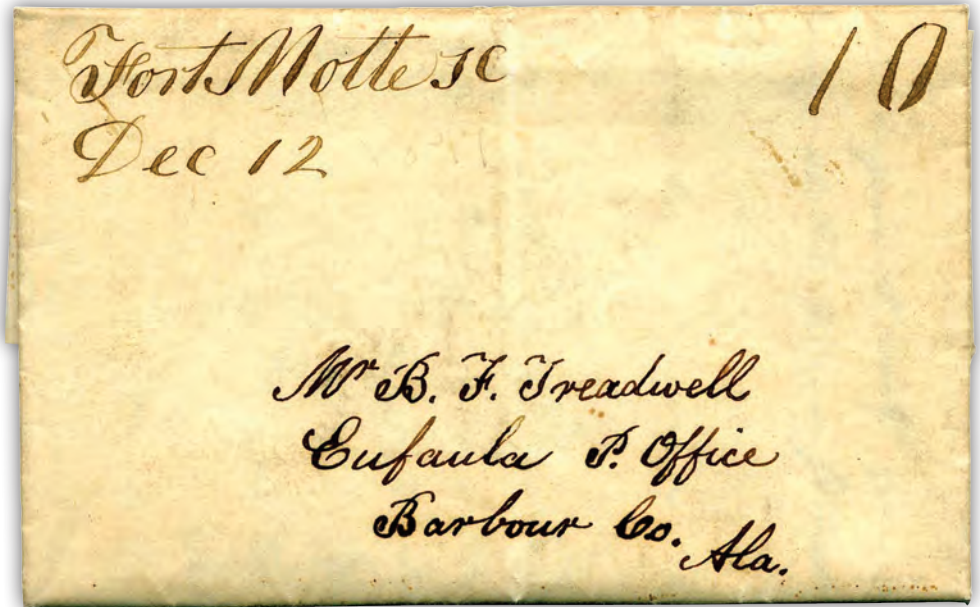 Fort Motte SC
Dec 12
10
Mr B. F. Treadwell
Eufaula P. Office
Barbour Co.
Ala.